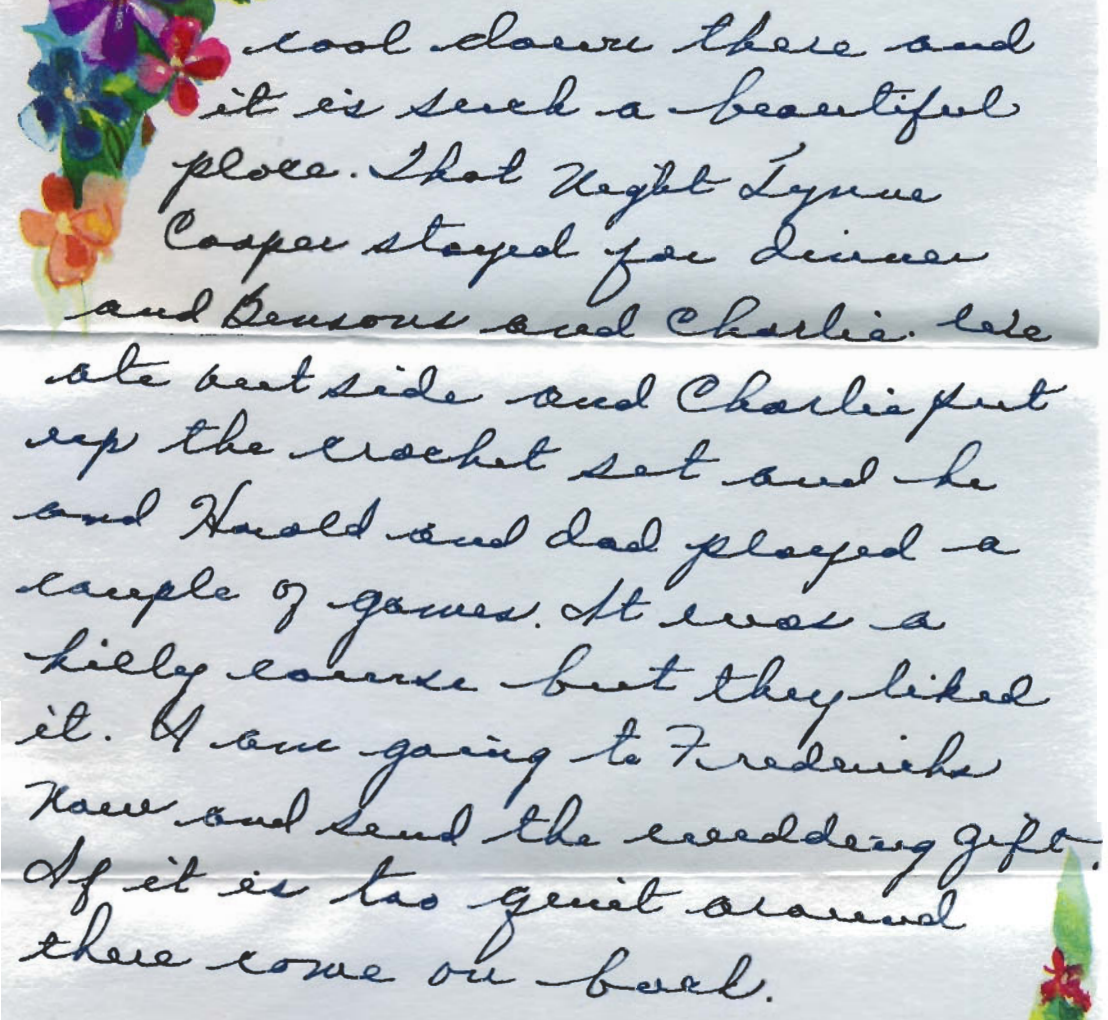 cool down there and
it is such a beautiful
place. That Night Lynne
Cooper stayed for dinner
and Bensons and Charlie. We
ate out side and Charlie put
up the crochet set and he
and Harold and dad played a
couple of games. It was a
hilly course but they liked
it. I am going to Fredricks
Now and send the wedding gift.
If it is too quiet around
there come on back.